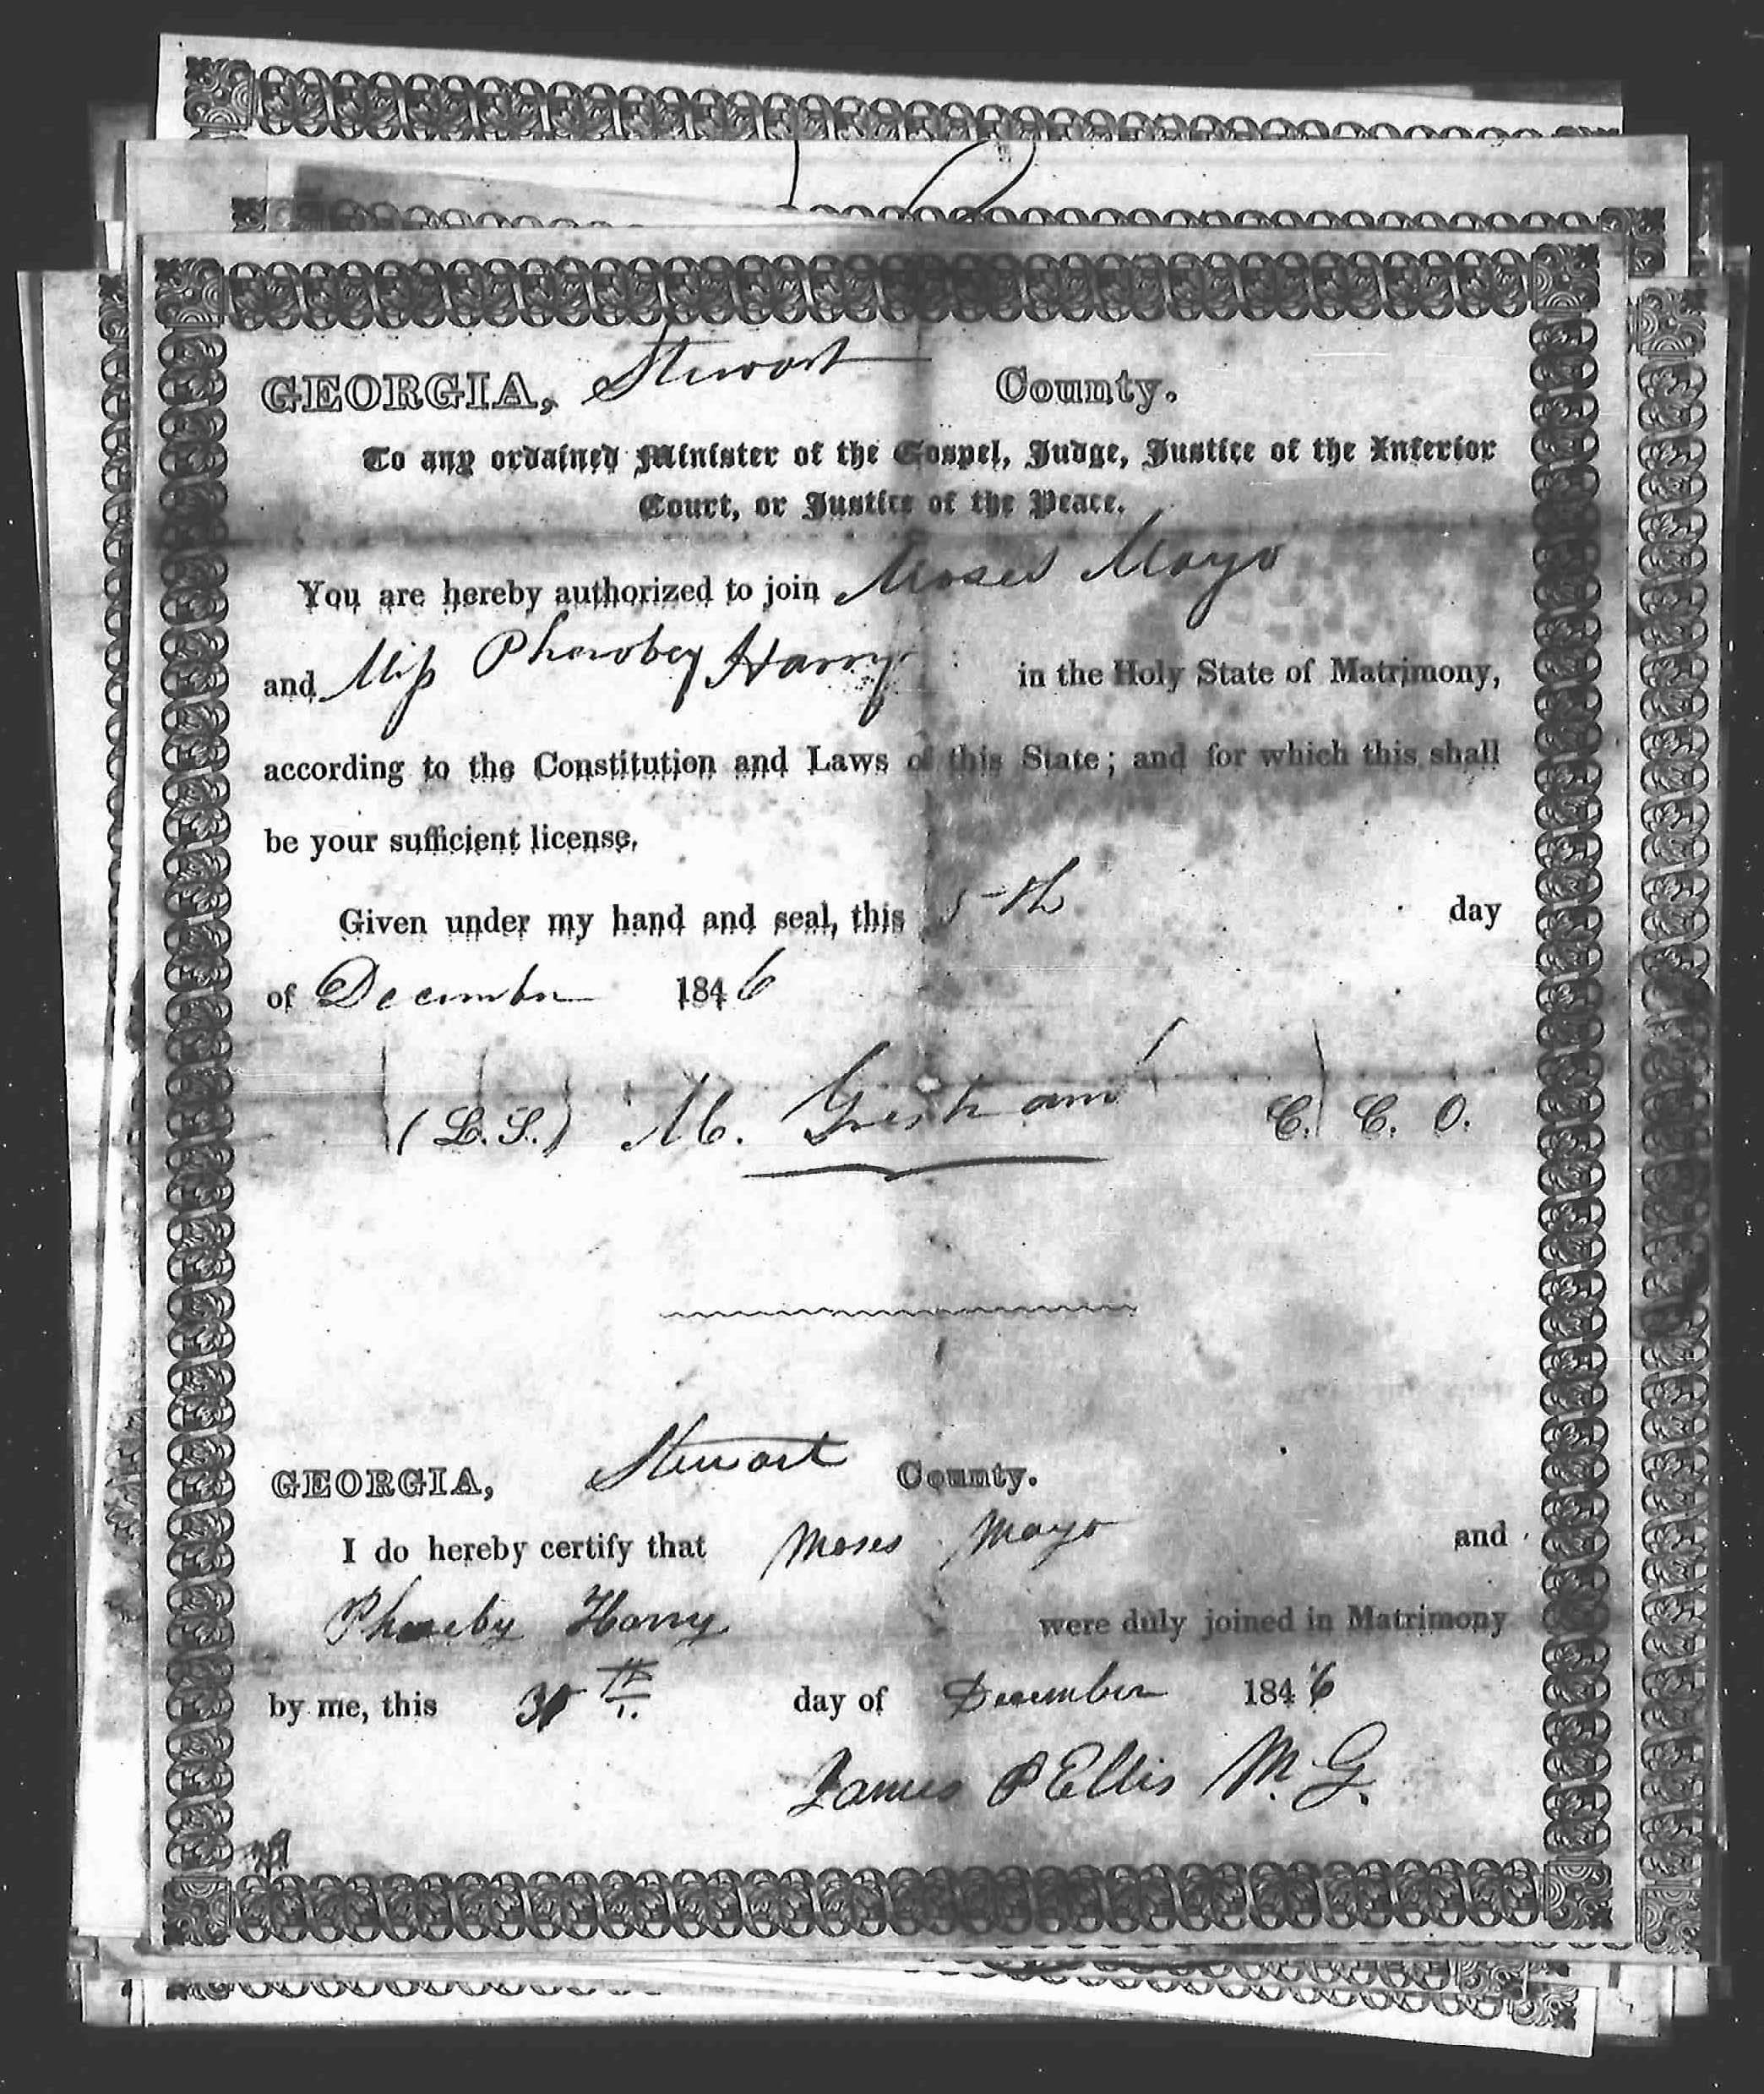 GEORGIA, Stewart County.
To any ordained Minister of the Gospel, Judge, Justice of the Inferior
Court, or Justice of the Peace.
You are hereby authorized to join Moses Mayo
and Miss Pheobey Harry in the Holy State of Matrimony,
according to the Constitution and Laws of this State; and for which this shall
be your sufficient license.
Given under my hand and seal, this 5th day
of December 1846
(L.S.) M. Gresham C. C. O.
GEORGIA, Stewart County.
I do hereby certify that Moses Mayo and
Phoeby Harry were duly joined in Matrimony
by me, this TH day of December 1846
James P Ellis M. G.